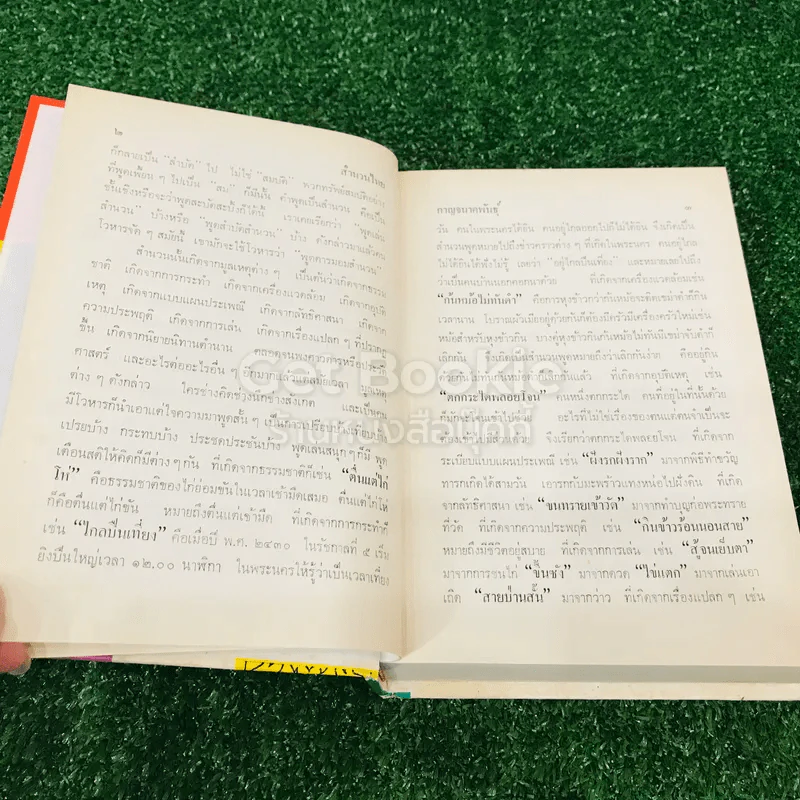 ๒
สำนวนไทย
ก็กลายเป็น "สำบัด" ไป ไม่ใช่ "สมบัติ" พวกทรัพย์สมบัติอย่าง
ที่พูดเพี้ยน ๆ ไปเป็น "สม" ก็มีนั้น คำพูดเป็นสำนวน คือเป็น
ชั้นเชิงหรือจะว่าพูดสะบัดสะบิ้งก็ได้นี้ เราเคยเรียกว่า "พูดเล่น
สำนวน" บ้างหรือ "พูดสำบัดสำนวน" บ้าง ดังกล่าวมาแล้วคน
โวหารจัด ๆ สมัยนี้ เขามักจะใช้โวหารว่า "พูดคารมอมสำนวน"
สำนวนนั้นเกิดจากมูลเหตุต่าง ๆ เป็นต้นว่าเกิดจากธรรม
ชาติ เกิดจากการกระทำ เกิดจากเครื่องแวดล้อม เกิดจากอุบัติ
เหตุ เกิดจากแบบแผนประเพณี เกิดจากลัทธิศาสนา เกิดจาก
ความประพฤติ เกิดจากการเล่น เกิดจากเรื่องแปลก ๆ ที่ปรากฏ
ขึ้น เกิดจากนิยายนิทานตำนาน ตลอดจนพงศาวดารหรือประวัติ
ศาสตร์ และอะไรต่ออะไรอื่น ๆ อีกมากแล้วแต่สมัยเวลา มูลเหตุ
ต่าง ๆ ดังกล่าว ใครช่างคิดช่วงนึกช่างสังเกต และเป็นคน
มีโวหารก็นำเอาแต่ใจความมาพูดสั้น ๆ เป็นการเปรียบบ้างเทียบบ้าง
เปรยบ้าง กระทบบ้าง ประชดประชันบ้าง พูดเล่นสนุก ๆ ก็มี พูด
เตือนสติให้คิดก็มีต่าง ๆ กัน ที่เกิดจากธรรมชาติก็เช่น "ตื่นแต่ไก่
โห่" คือธรรมชาติของไก่ย่อมขันในเวลาเช้ามืดเสมอ ตื่นแต่ไก่โห่
ก็คือตื่นแต่ไก่ขัน หมายถึงตื่นแต่เช้ามืด ที่เกิดจากการกระทำก็
เช่น "ไกลปืนเที่ยง" คือเมื่อปี พ.ศ. ๒๔๓๐ ในรัชกาลที่ ๕ เริ่ม
ยิงปืนใหญ่เวลา ๑๒.๐๐ นาฬิกา ในพระนครให้รู้ว่าเป็นเวลาเที่ยง
กาญจนาคพันธุ์
๓
วัน คนในพระนครได้ยิน คนอยู่ไกลออกไปก็ไม่ได้ยิน จึงเกิดเป็น
สำนวนพูดหมายไปถึงข่าวคราวต่าง ๆ ที่เกิดในพระนคร คนอยู่ไกล
ไม่ได้ยินได้ฟังไม่รู้ เลยว่า "อยู่ไกลปืนเที่ยง" และหมายเลยไปถึง
ว่าเป็นคนบ้านนอกคอกนาด้วย ที่เกิดจากเครื่องแวดล้อมเช่น
"ก้นหม้อไม่ทันดำ" คือการหุงข้าวกว่าก้นหม้อจะติดเขม่าดำก็กิน
เวลานาน โบราณผัวเมียอยู่ด้วยกันก็ต้องมีเครื่องครัวใหม่เช่น
หม้อสำหรับหุงข้าวกิน บางคู่หุงข้าวกินก้นหม้อไม่ทันมีเขม่าจับดำก็
เลิกกัน จึงเกิดเป็นสำนวนพูดหมายถึงว่าเลิกกันง่าย คืออยู่กัน
เลิกกัน แล้ว ที่เกิดจากอุบัติเหตุ เช่น
"ตกกระไดพลอยโจน" คนหนึ่งตกกระได คนที่อยู่ในที่นั้นด้วย
ก็มักจะโจนเข้าไปช่วย อะไรที่ไม่ใช่เรื่องของตนแต่ตนจำเป็นจะ
ต้องเข้าไปร่วมด้วย จึงเรียกว่าตกกระไดพลอยโจน ที่เกิดจาก
ระเบียบแบบแผนประเพณี เช่น "ฝังรกฝังราก" มาจากพิธีทำขวัญ
ทารกเกิดได้สามวัน เอารกกับมะพร้าวแทงหน่อไปฝังดิน ที่เกิด
จากลัทธิศาสนา เช่น "ขนทรายเข้าวัด" มาจากทำบุญก่อพระทราย
ที่วัด ที่เกิดจากความประพฤติ เช่น "กินข้าวร้อนนอนสาย"
หมายถึงมีชีวิตอยู่สบาย ที่เกิดจากการเล่น เช่น "สู้จนเย็บตา"
มาจากการชนไก่ "ขี้นชัง" มาจากดวด "ไข่แตก" มาจากเล่นเอา
เถิด "สายป่านสั้น" มาจากว่าว ที่เกิดจากเรื่องแปลก ๆ เช่น
Get Bookie
ร้านหนังสือเก็ทบุ๊คกี้